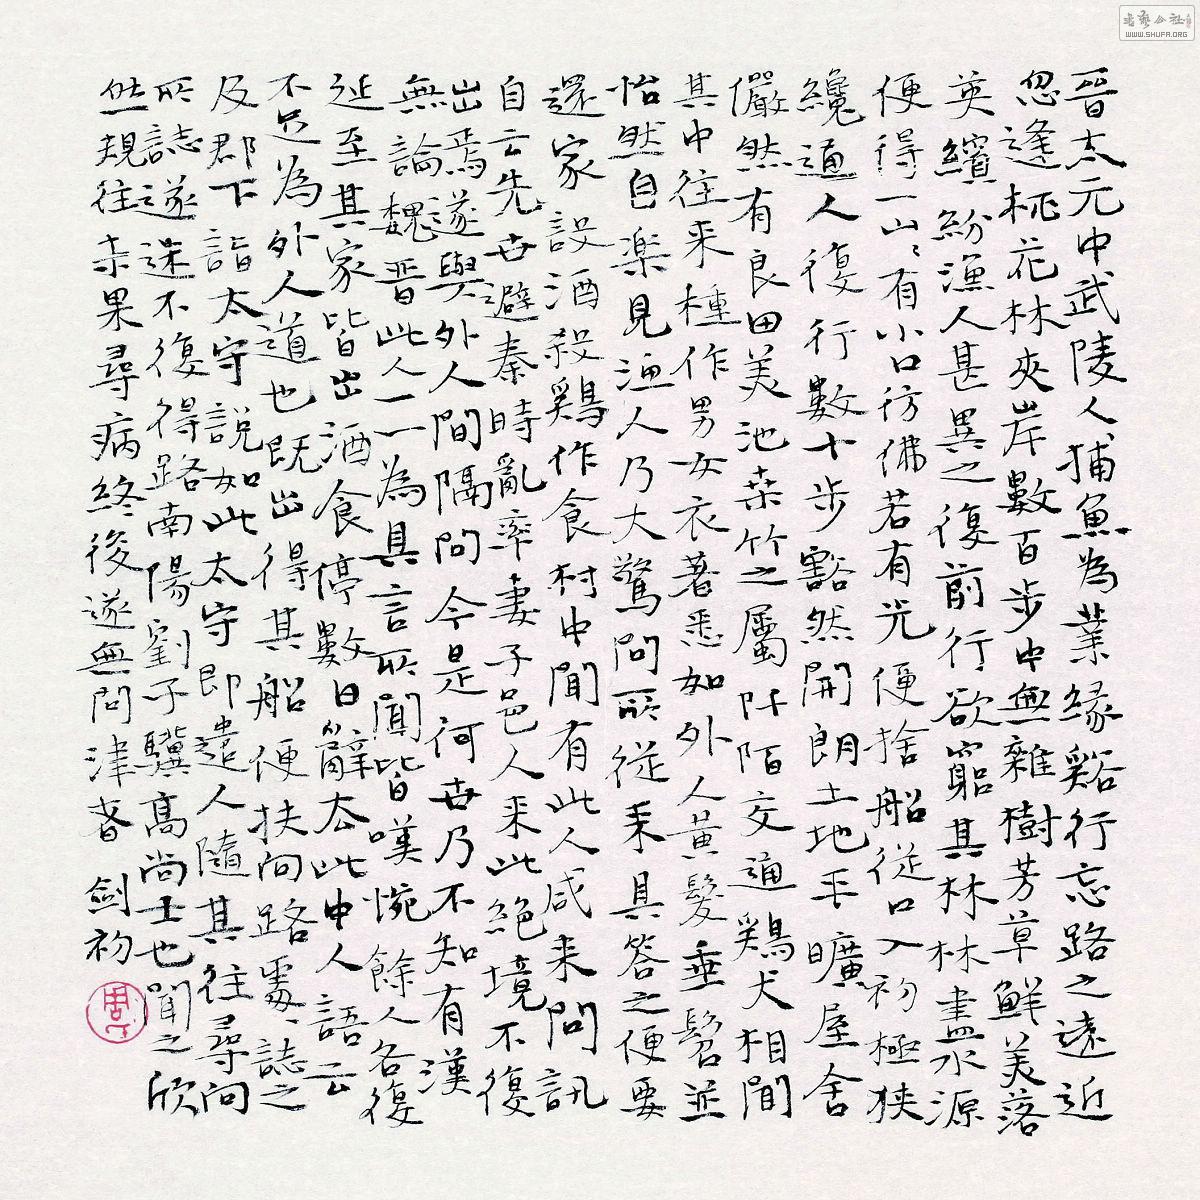 晉太元中武陵人捕魚為業緣谿行忘路之遠近
忽逢桃花林夾岸數百步中無雜樹芳草鮮美落
英繽紛漁人甚異之復前行欲窮其林林盡水源
便得一山〻有小口彷彿若有光便捨船從口入初極狹
纔通人復行數十步豁然開朗土地平曠屋舍
儼然有良田美池桑竹之屬阡陌交通鷄犬相聞
其中往来種作男女衣著悉如外人黃髮垂髫並
怡然自楽見漁人乃大驚問所從来具答之便要
還家設酒殺鷄作食村中聞有此人咸来問訊
自云先世避秦時亂率妻子邑人来此絕境不復
出焉遂與外人間隔問今是何世乃不知有漢
無論魏晉此人一一為具言所聞皆嘆惋餘人各復
延至其家皆出酒食停數日辭去此中人語云
不足為外人道也既出得其船便扶向路處〻誌之
及郡下詣太守說如此太守即遣人隨其往尋向
所誌遂迷不復得路南陽劉子驥高尚士也聞之欣
然規往未果尋病終後遂無問津者 劍初
書藝公社
WWW.SHUFA.ORG